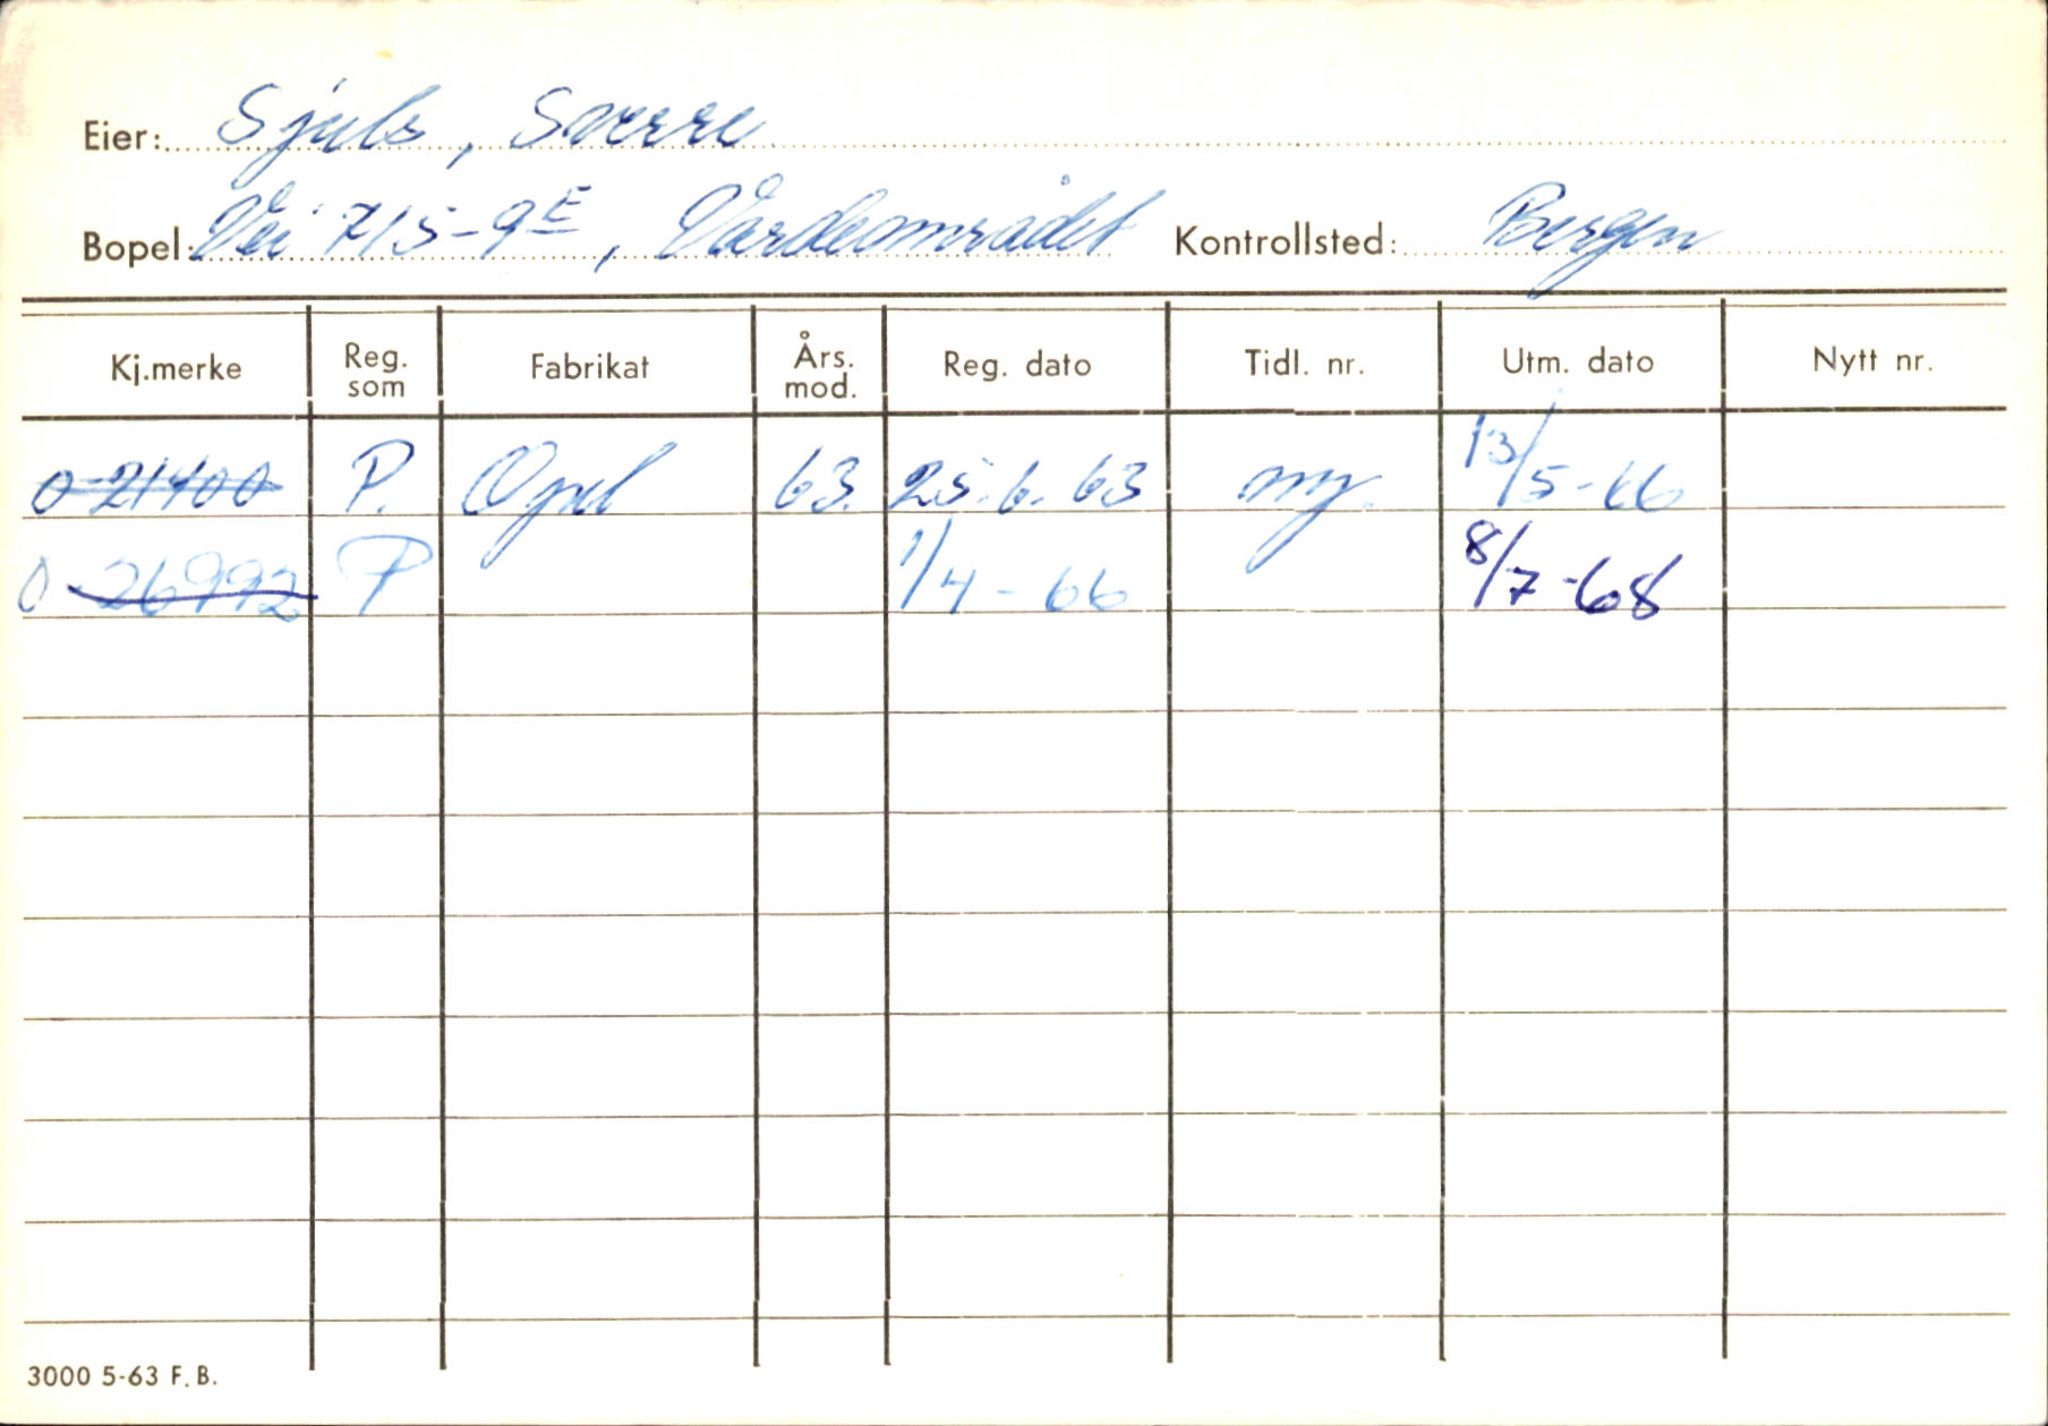 Eier: Sjuls, Sverre
Bopel: Vei 715-9E, Vardeområdet Kontrollsted: Bergen
Kj.merke Reg. som Fabrikat Års. mod. Reg. dato Tidl. nr. Utm. dato Nytt nr.
O-21400 P. Opel 63. 25.6.63 ny. 13/5-66
O 26992 P 1/4-66 8/7-68
3000 5-63 F.B.